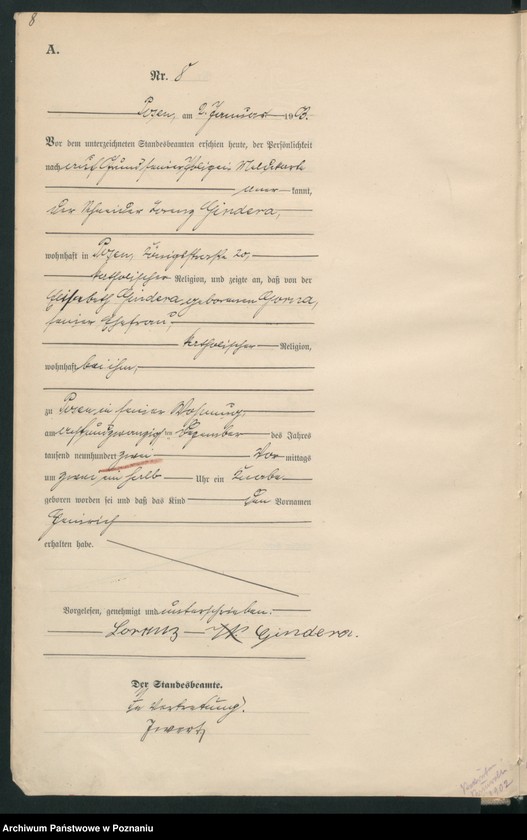 8
A.
Nr. 8
Posen, am 2. Januar 1903.
Vor dem unterzeichneten Standesbeamten erschien heute, der Persönlichkeit
nach auf Grund seiner Meldekarte
aner kannt,
der Schneider Lorenz Gindera,
wohnhaft in Posen, Königstraße 20,
katholischer Religion, und zeigte an, daß von der
Elisabeth Gindera, geborenen Gorna,
seiner Ehefrau,
katholischer Religion,
wohnhaft bei ihm,
zu Posen, in seiner Wohnung,
am ten Dezember des Jahres
tausend neunhundert zwei Vor mittags
um zwei ein halb Uhr ein Knabe
geboren worden sei und daß das Kind den Vornamen
Heinrich
erhalten habe.
Vorgelesen, genehmigt und unterschrieben.
Lorenz Gindera.
Der Standesbeamte.
In Vertretung.
1902
Archiwum Państwowe w Poznaniu